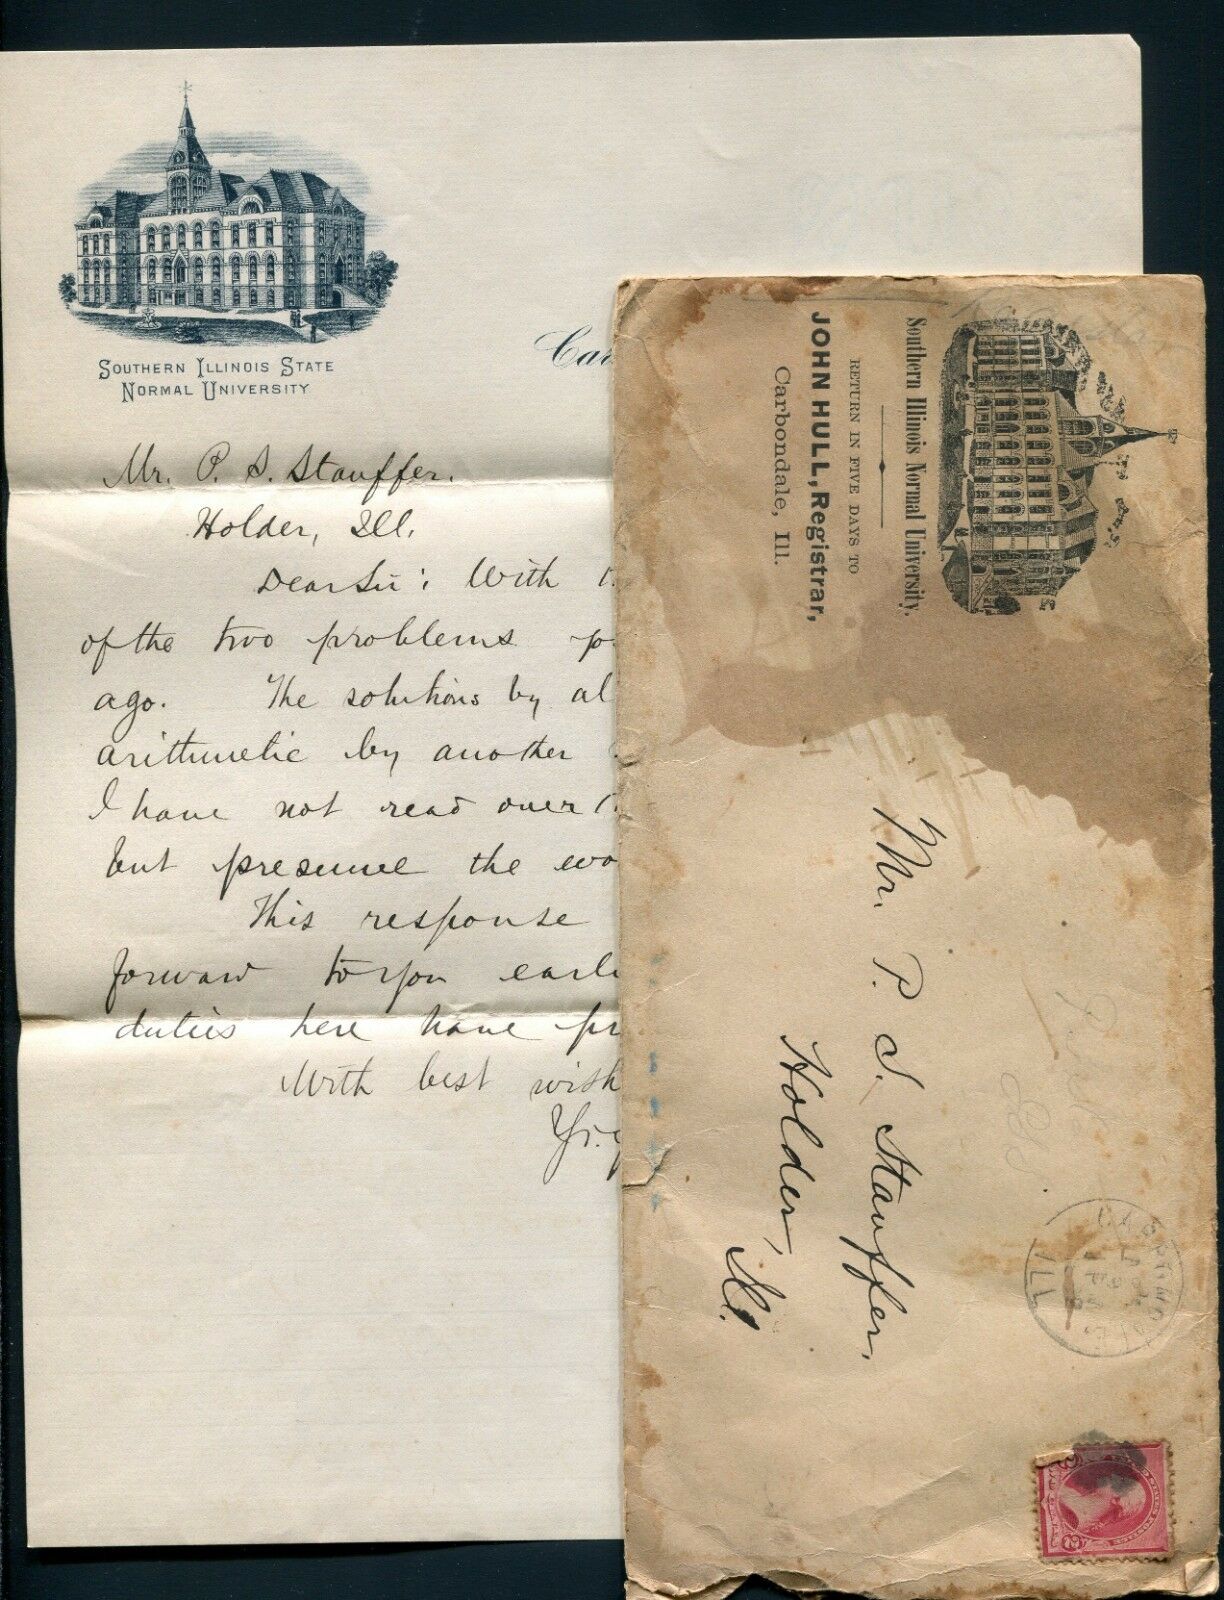 SOUTHERN ILLINOIS STATE
NORMAL UNIVERSITY
Mr. P. S. Stauffer.
Holder, Ill.
Dear Sir: With
of the two problems
ago. The solutions by al
arithmetic by another
I have not read over
but presume the wo
This response
forward to you earli
duties here have pr
With best wish
Southern Illinois Normal University,
RETURN IN FIVE DAYS TO
JOHN HULL, Registrar,
Carbondale, Ill.
Mr. P. S. Stauffer,
Holder, Ill.
CARBONDALE
ILL.